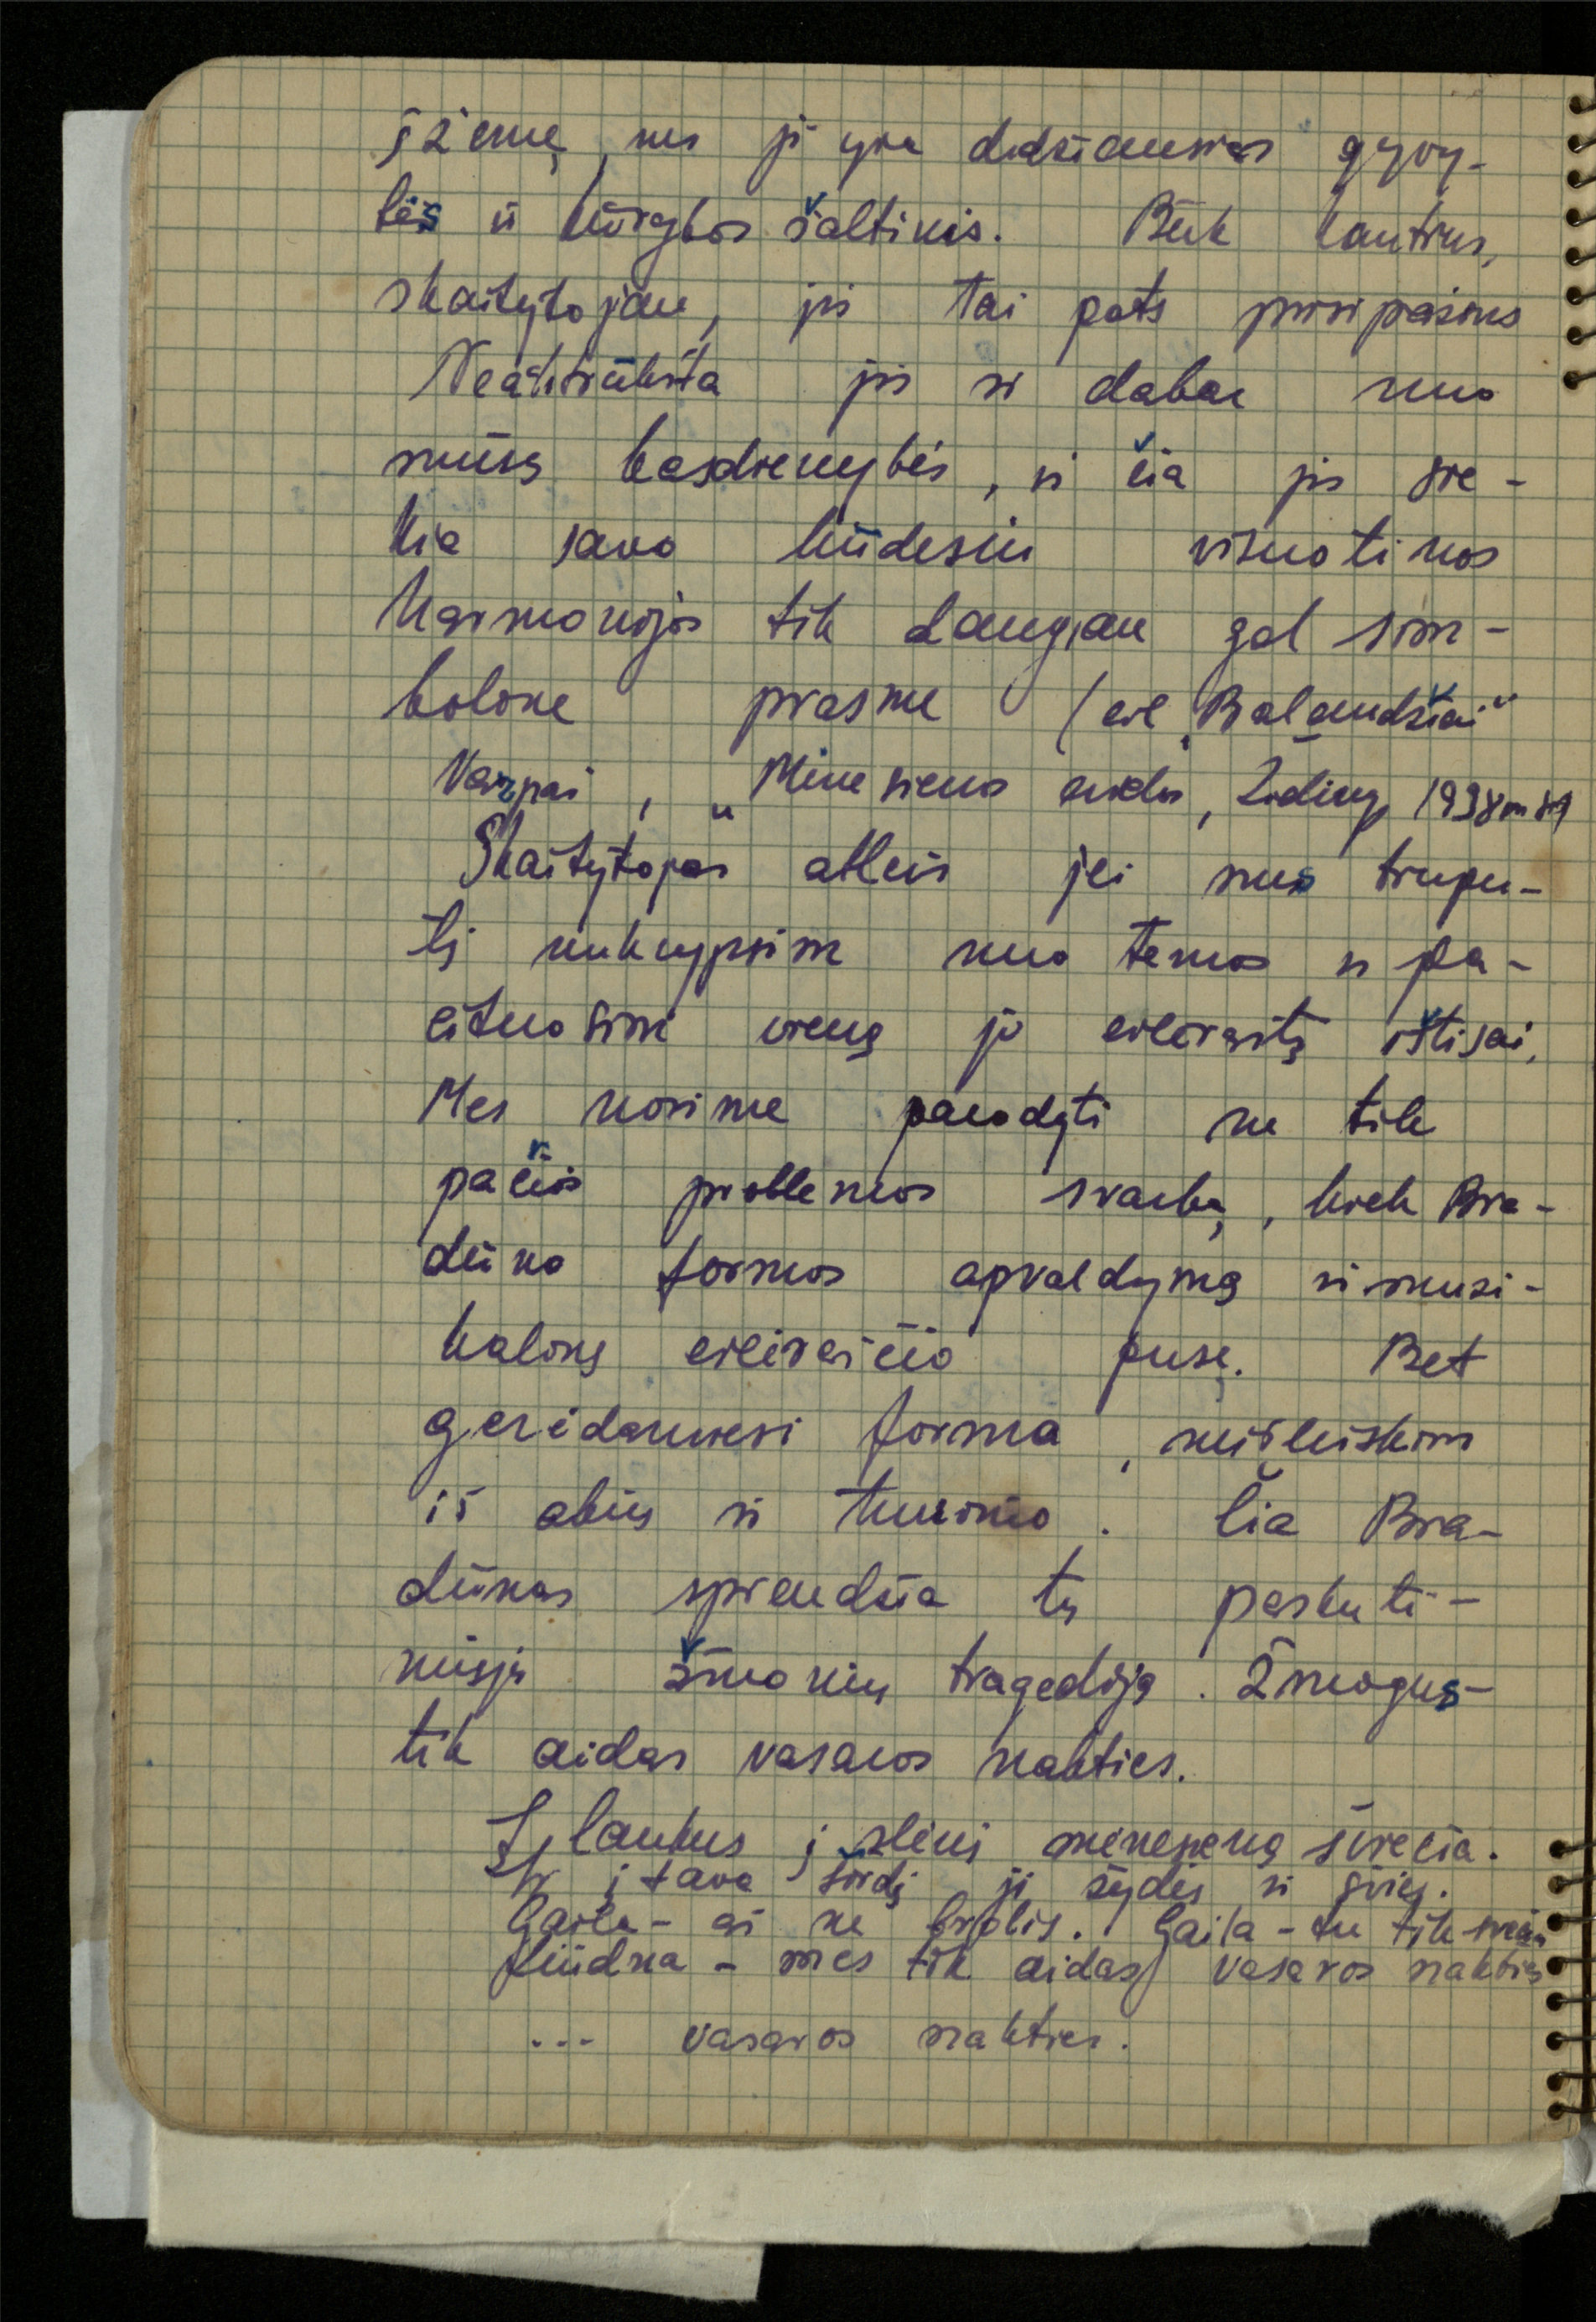 į žemę, nes ji yra didžiausias gyvy-
bės ir kūrybos šaltinis. Būk kantrus,
skaitytojau, jis tai pats prisipažins
Neatitrūksta jis ir dabar nuo
mūsų kasdienybės, ir čia jis sie-
kia savo liūdesiu visuotinos
harmonijos tik daugiau gal sim-
boline prasme (eil „Balandžiai"
Varpai, „Mėnesienos aidas, Židiny 1938 m
Skaitytojas atleis jei mes trupu-
tį nukrypsim nuo temos ir pa-
cituosim vieną jo eilėraštį ištisai,
Mes norime parodyti ne tik
pačios problemos svarbą, kiek Bra-
dūno formos apvaldymą ir muzi-
kalinę eilėraščio pusę. Bet
gerėdamiesi forma, neišleiskim
iš akių ir turinio. Čia Bra-
dūnas sprendžia tų paskuti-
niųjų žmonių tragediją. Žmogus-
tik aidas vasaros nakties.
Įlaukus į slėnį mėnesieną šviečia.
Ir į tavo širdį ji žydės ir švies.
Gaila - aš ne brolis. Gaila - tu tik svečias
Liūdna - mes tik aidas vasaros nakties
... vasaros nakties.